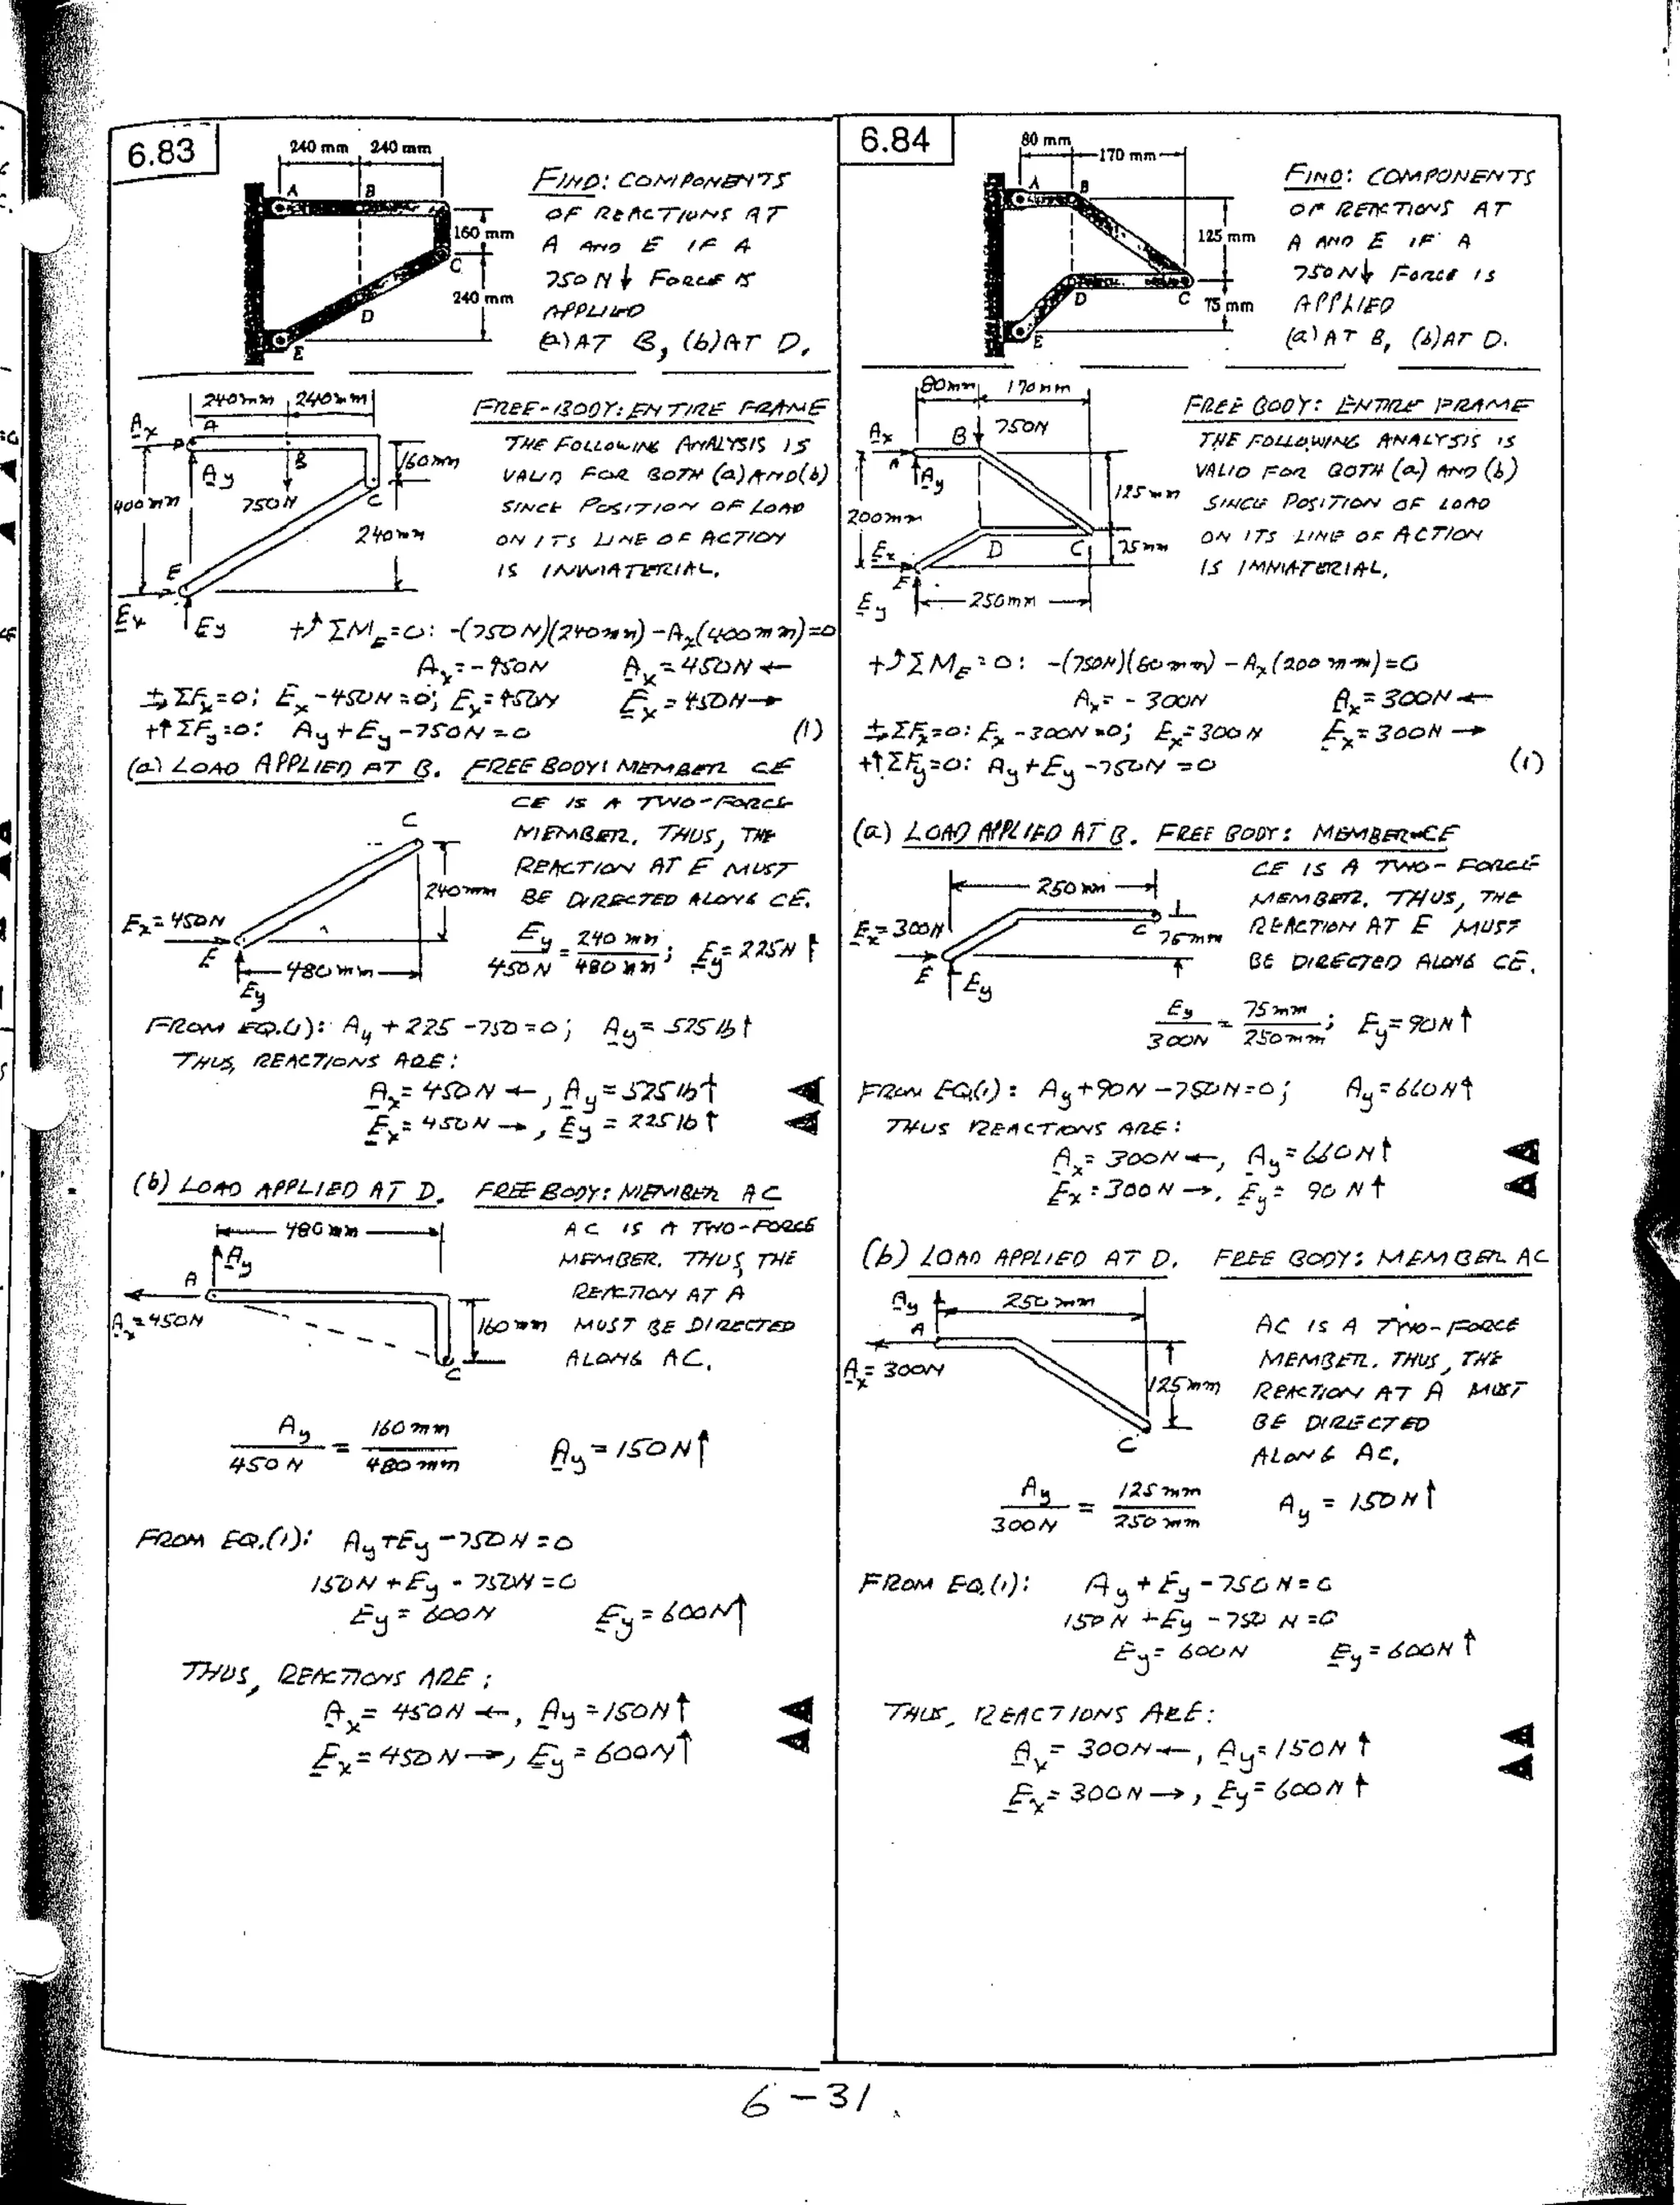 6.83
240 mm 240 mm
A B
160 mm
C
240 mm
D
E
FIND: COMPONENTS
OF REACTIONS AT
A AND E IF A
750 N ↓ FORCE IS
APPLIED
(a) AT B, (b) AT D.
240mm 240mm
Ax A
Ay B
160mm
400mm 750N C
240mm
E
Ex Ey
FREE-BODY: ENTIRE FRAME
THE FOLLOWING ANALYSIS IS
VALID FOR BOTH (a) AND (b)
SINCE POSITION OF LOAD
ON ITS LINE OF ACTION
IS IMMATERIAL.
+↑ ΣM_E=0: -(750 N)(240mm) - Ax(400mm)=0
Ax=-450N Ax=450N ←
ΣFx=0; Ex-450N=0; Ex=450N Ex=450N→
+↑ΣFy=0: Ay+Ey-750N=0 (1)
(a) LOAD APPLIED AT B. FREE BODY: MEMBER CE
CE IS A TWO-FORCE
MEMBER. THUS, THE
REACTION AT E MUST
BE DIRECTED ALONG CE.
C
240mm
Ex=450N
E
480mm
Ey
Ey/450N = 240mm/480mm; Ey=225N ↑
FROM EQ.(1): Ay+225-750=0; Ay=525 lb↑
THUS, REACTIONS ARE:
Ax=450N ←, Ay=525 lb↑
Ex=450N →, Ey=225 lb↑
(b) LOAD APPLIED AT D. FREE BODY: MEMBER AC
480mm
Ay
A
Ax=450N
160mm
C
AC IS A TWO-FORCE
MEMBER. THUS, THE
REACTION AT A
MUST BE DIRECTED
ALONG AC.
Ay/450N = 160mm/480mm Ay=150N↑
FROM EQ.(1): Ay+Ey-750N=0
150N+Ey-750N=0
Ey=600N Ey=600N↑
THUS, REACTIONS ARE:
Ax=450N ←, Ay=150N↑
Ex=450N →, Ey=600N↑
6.84
80 mm
170 mm
A B
125 mm
D C 75 mm
E
FIND: COMPONENTS
OF REACTIONS AT
A AND E IF A
750N↓ FORCE IS
APPLIED
(a) AT B, (b) AT D.
80mm 170mm
Ax B 750N
A Ay
125mm
200mm
Ex D C 75mm
E
Ey 250mm
FREE BODY: ENTIRE FRAME
THE FOLLOWING ANALYSIS IS
VALID FOR BOTH (a) AND (b)
SINCE POSITION OF LOAD
ON ITS LINE OF ACTION
IS IMMATERIAL.
+↑ΣM_E=0: -(750N)(80mm) - Ax(200mm)=0
Ax=-300N Ax=300N←
ΣFx=0: Ex-300N=0; Ex=300N Ex=300N →
+↑ΣFy=0: Ay+Ey-750N=0 (1)
(a) LOAD APPLIED AT B. FREE BODY: MEMBER CE
CE IS A TWO-FORCE
MEMBER. THUS, THE
REACTION AT E MUST
BE DIRECTED ALONG CE.
250mm
Ex=300N
C 75mm
E Ey
Ey/300N = 75mm/250mm; Ey=90N↑
FROM EQ(1): Ay+90N-750N=0; Ay=660N↑
THUS REACTIONS ARE:
Ax=300N←, Ay=660N↑
Ex=300N→, Ey=90N↑
(b) LOAD APPLIED AT D. FREE BODY: MEMBER AC
Ay 250mm
A
Ax=300N
125mm
C
AC IS A TWO-FORCE
MEMBER. THUS, THE
REACTION AT A MUST
BE DIRECTED
ALONG AC.
Ay/300N = 125mm/250mm Ay=150N↑
FROM EQ.(1): Ay+Ey-750N=0
150N+Ey-750N=0
Ey=600N Ey=600N↑
THUS, REACTIONS ARE:
Ax=300N←, Ay=150N↑
Ex=300N→, Ey=600N↑
6-31